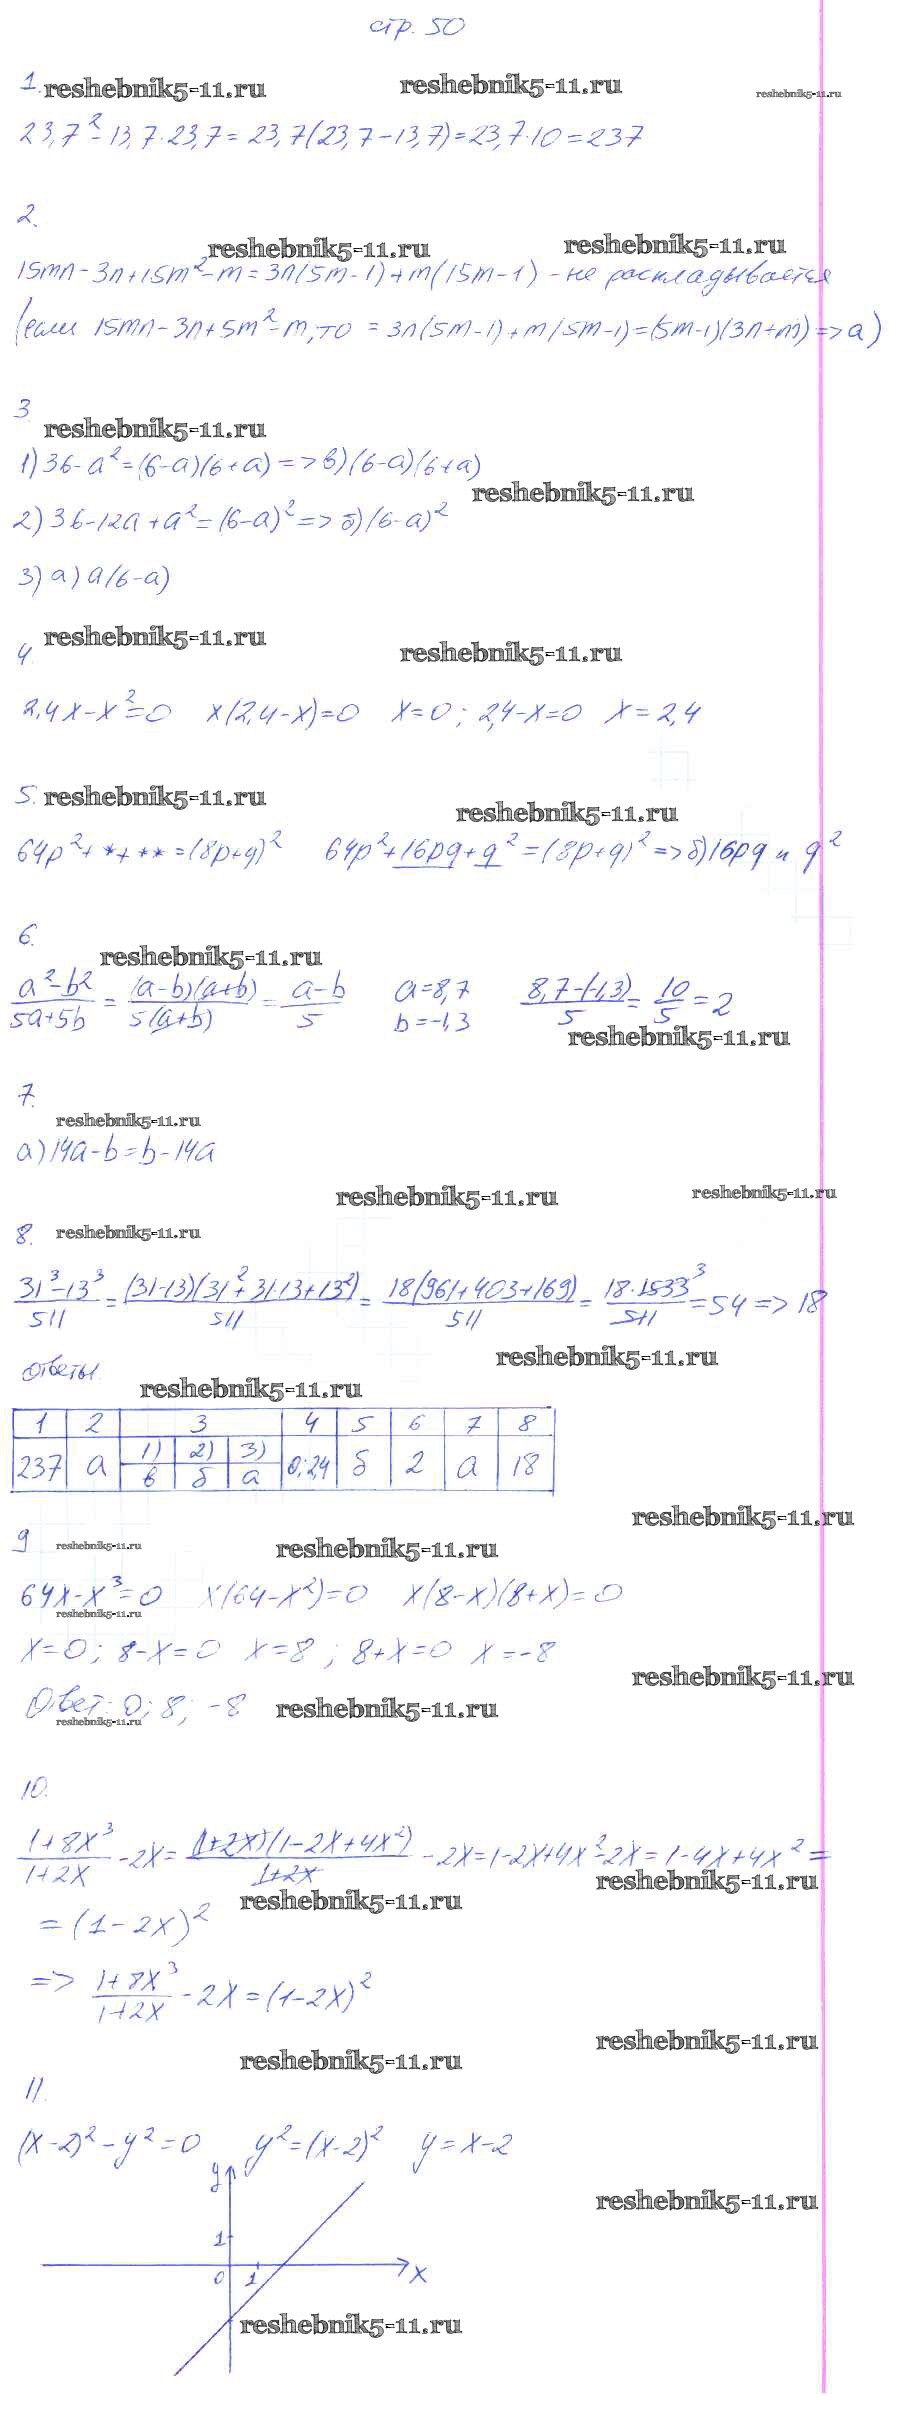 стр. 50
1. reshebnik5-11.ru reshebnik5-11.ru reshebnik5-11.ru
23,7² - 13,7·23,7 = 23,7(23,7 - 13,7) = 23,7·10 = 237
2.
reshebnik5-11.ru reshebnik5-11.ru
15mn - 3n + 15m² - m = 3n(5m - 1) + m(15m - 1) - не раскладывается
(если 15mn - 3n + 5m² - m, то = 3n(5m - 1) + m(5m - 1) = (5m - 1)(3n + m) => а)
3
reshebnik5-11.ru
1) 36 - a² = (6 - a)(6 + a) => в) (6 - a)(6 + a)
reshebnik5-11.ru
2) 36 - 12a + a² = (6 - a)² => б) (6 - a)²
3) а) a(6 - a)
4. reshebnik5-11.ru reshebnik5-11.ru
2,4x - x² = 0 x(2,4 - x) = 0 x = 0; 2,4 - x = 0 x = 2,4
5. reshebnik5-11.ru reshebnik5-11.ru
64p² + * + ** = (8p + q)² 64p² + 16pq + q² = (8p + q)² => б) 16pq и q²
6.
reshebnik5-11.ru
a² - b² / 5a + 5b = (a - b)(a + b) / 5(a + b) = a - b / 5 a = 8,7 b = -1,3 8,7 - (-1,3) / 5 = 10 / 5 = 2
reshebnik5-11.ru
7.
reshebnik5-11.ru
а) 14a - b = b - 14a
reshebnik5-11.ru reshebnik5-11.ru
8. reshebnik5-11.ru
31³ - 13³ / 511 = (31 - 13)(31² + 31·13 + 13²) / 511 = 18(961 + 403 + 169) / 511 = 18·1533³ / 511 = 54 => 18
reshebnik5-11.ru
ответы.
reshebnik5-11.ru
1 2 3 4 5 6 7 8
237 а 1) 2) 3) 0; 24 б 2 а 18
в б а
reshebnik5-11.ru
9 reshebnik5-11.ru reshebnik5-11.ru
64x - x³ = 0 x(64 - x²) = 0 x(8 - x)(8 + x) = 0
reshebnik5-11.ru
x = 0; 8 - x = 0 x = 8; 8 + x = 0 x = -8
reshebnik5-11.ru
Ответ: 0; 8; -8 reshebnik5-11.ru
reshebnik5-11.ru
10.
1 + 8x³ / 1 + 2x - 2x = (1 + 2x)(1 - 2x + 4x²) / 1 + 2x - 2x = 1 - 2x + 4x² - 2x = 1 - 4x + 4x² =
reshebnik5-11.ru reshebnik5-11.ru
= (1 - 2x)²
=> 1 + 8x³ / 1 + 2x - 2x = (1 - 2x)²
reshebnik5-11.ru reshebnik5-11.ru
11.
(x - 2)² - y² = 0 y² = (x - 2)² y = x - 2
y
reshebnik5-11.ru
1
0 1 x
reshebnik5-11.ru